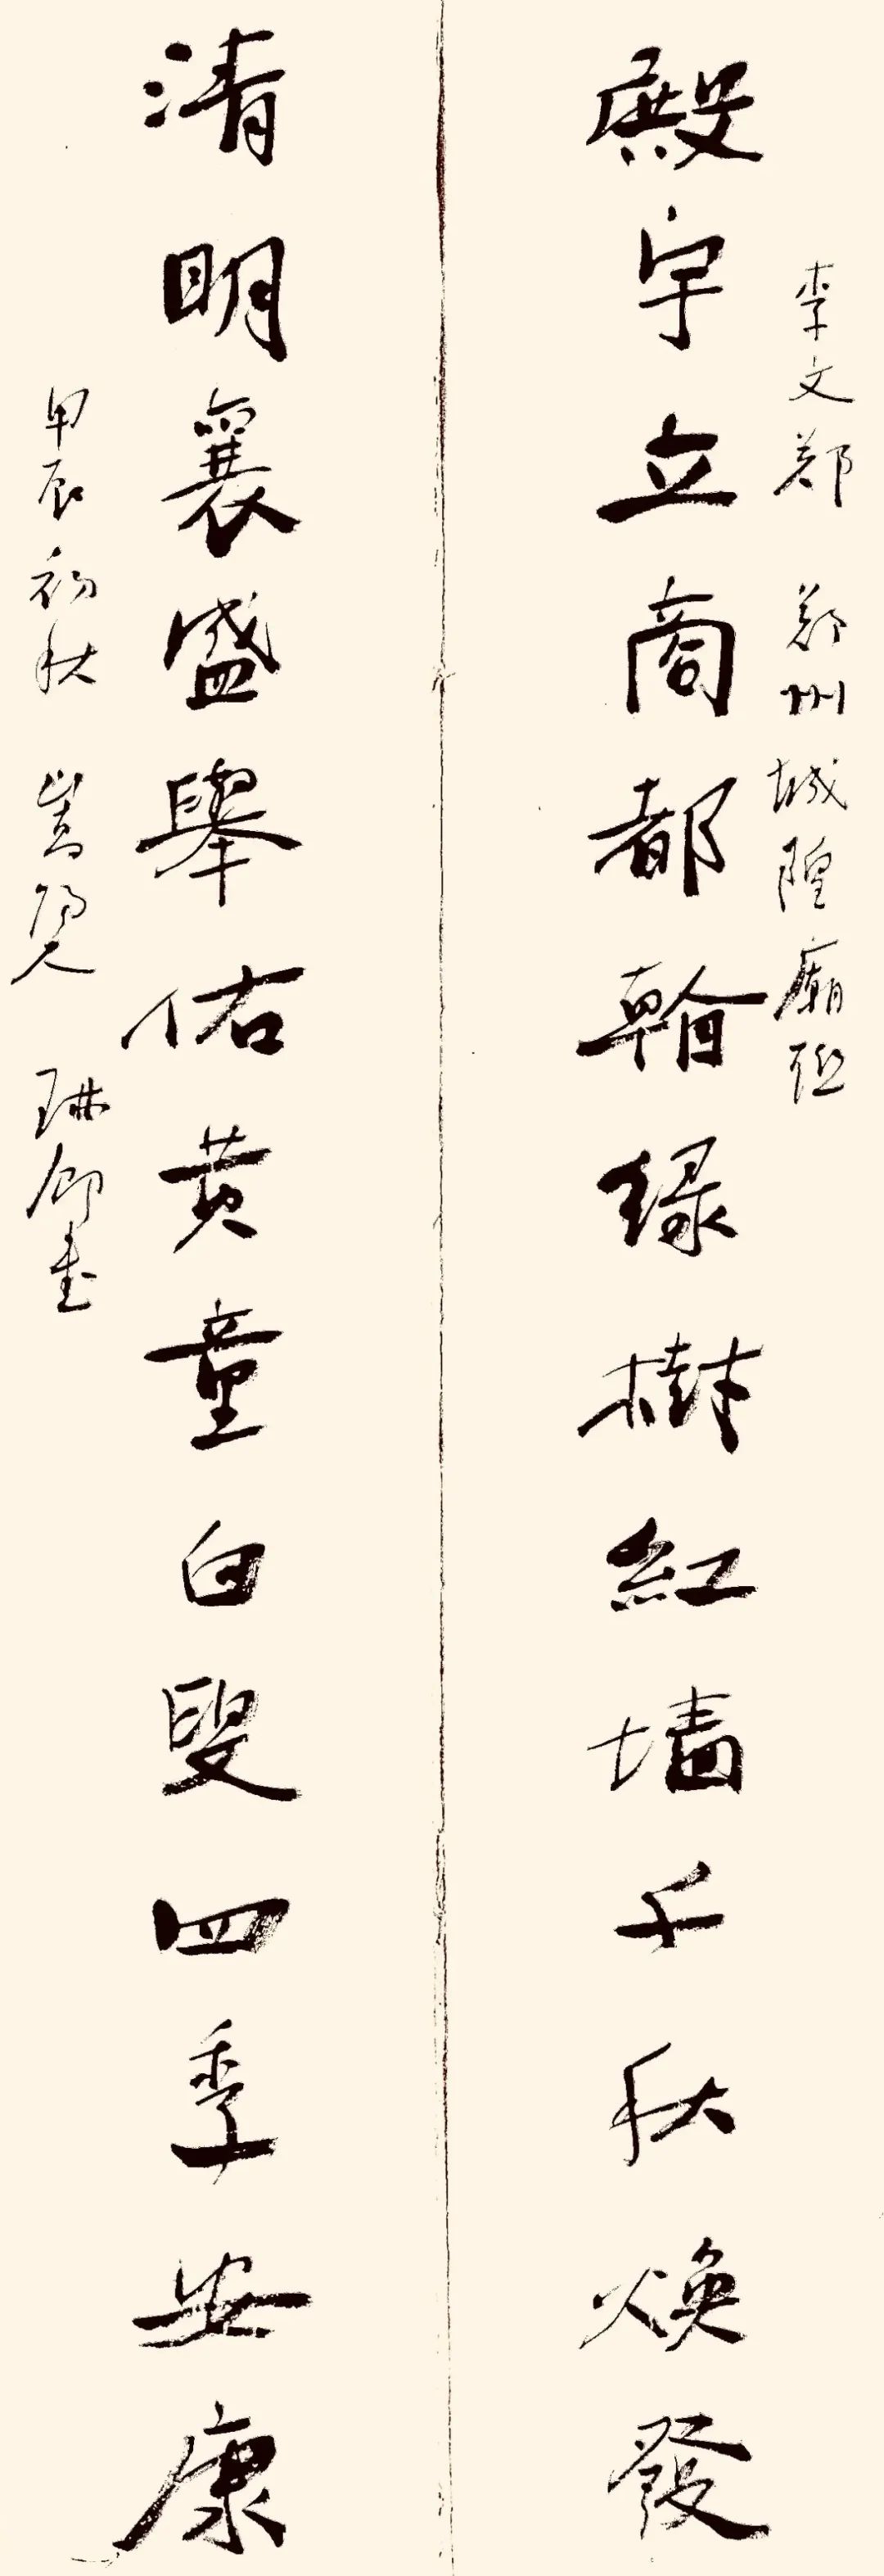 李文郑 郑州城隍廟联
殿宇立商都绿樹紅墙千秋焕發
清明襄盛舉佑黄童白叟四季安康
甲辰初秋 嵩阳人 琳卿书